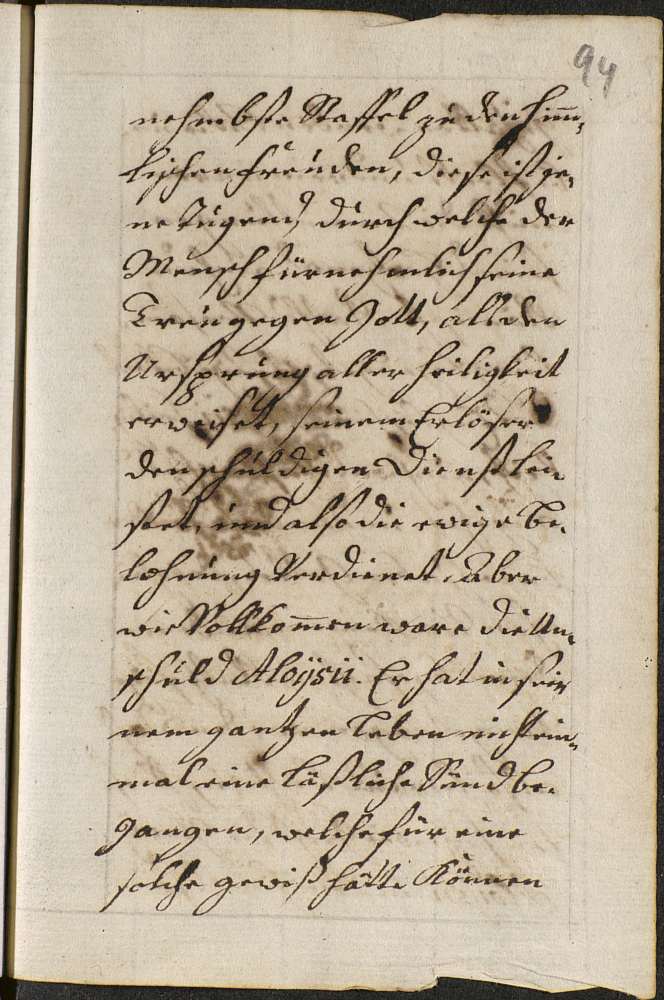 94
nehmbste Staffel zu den him̅,
lischen freüden, diese ist je,
ne Tugend, durch welche der
Mensch fürnehmlich seine
Treü gegen Gott, als den
Ursprung aller heiligkeit
erweiset, seinem Erlöser
den schuldigen Dienst lei,
stet, und also die ewige Be,
lohnung Verdienet. Aber
wie Vollkom̅en ware die Un,
schuld Aloÿsii. Er hat in sei,
nem gantzen Leben nicht ein,
mal eine läßliche Sünd be,
gangen, welche für eine
solche gewiß hätte können